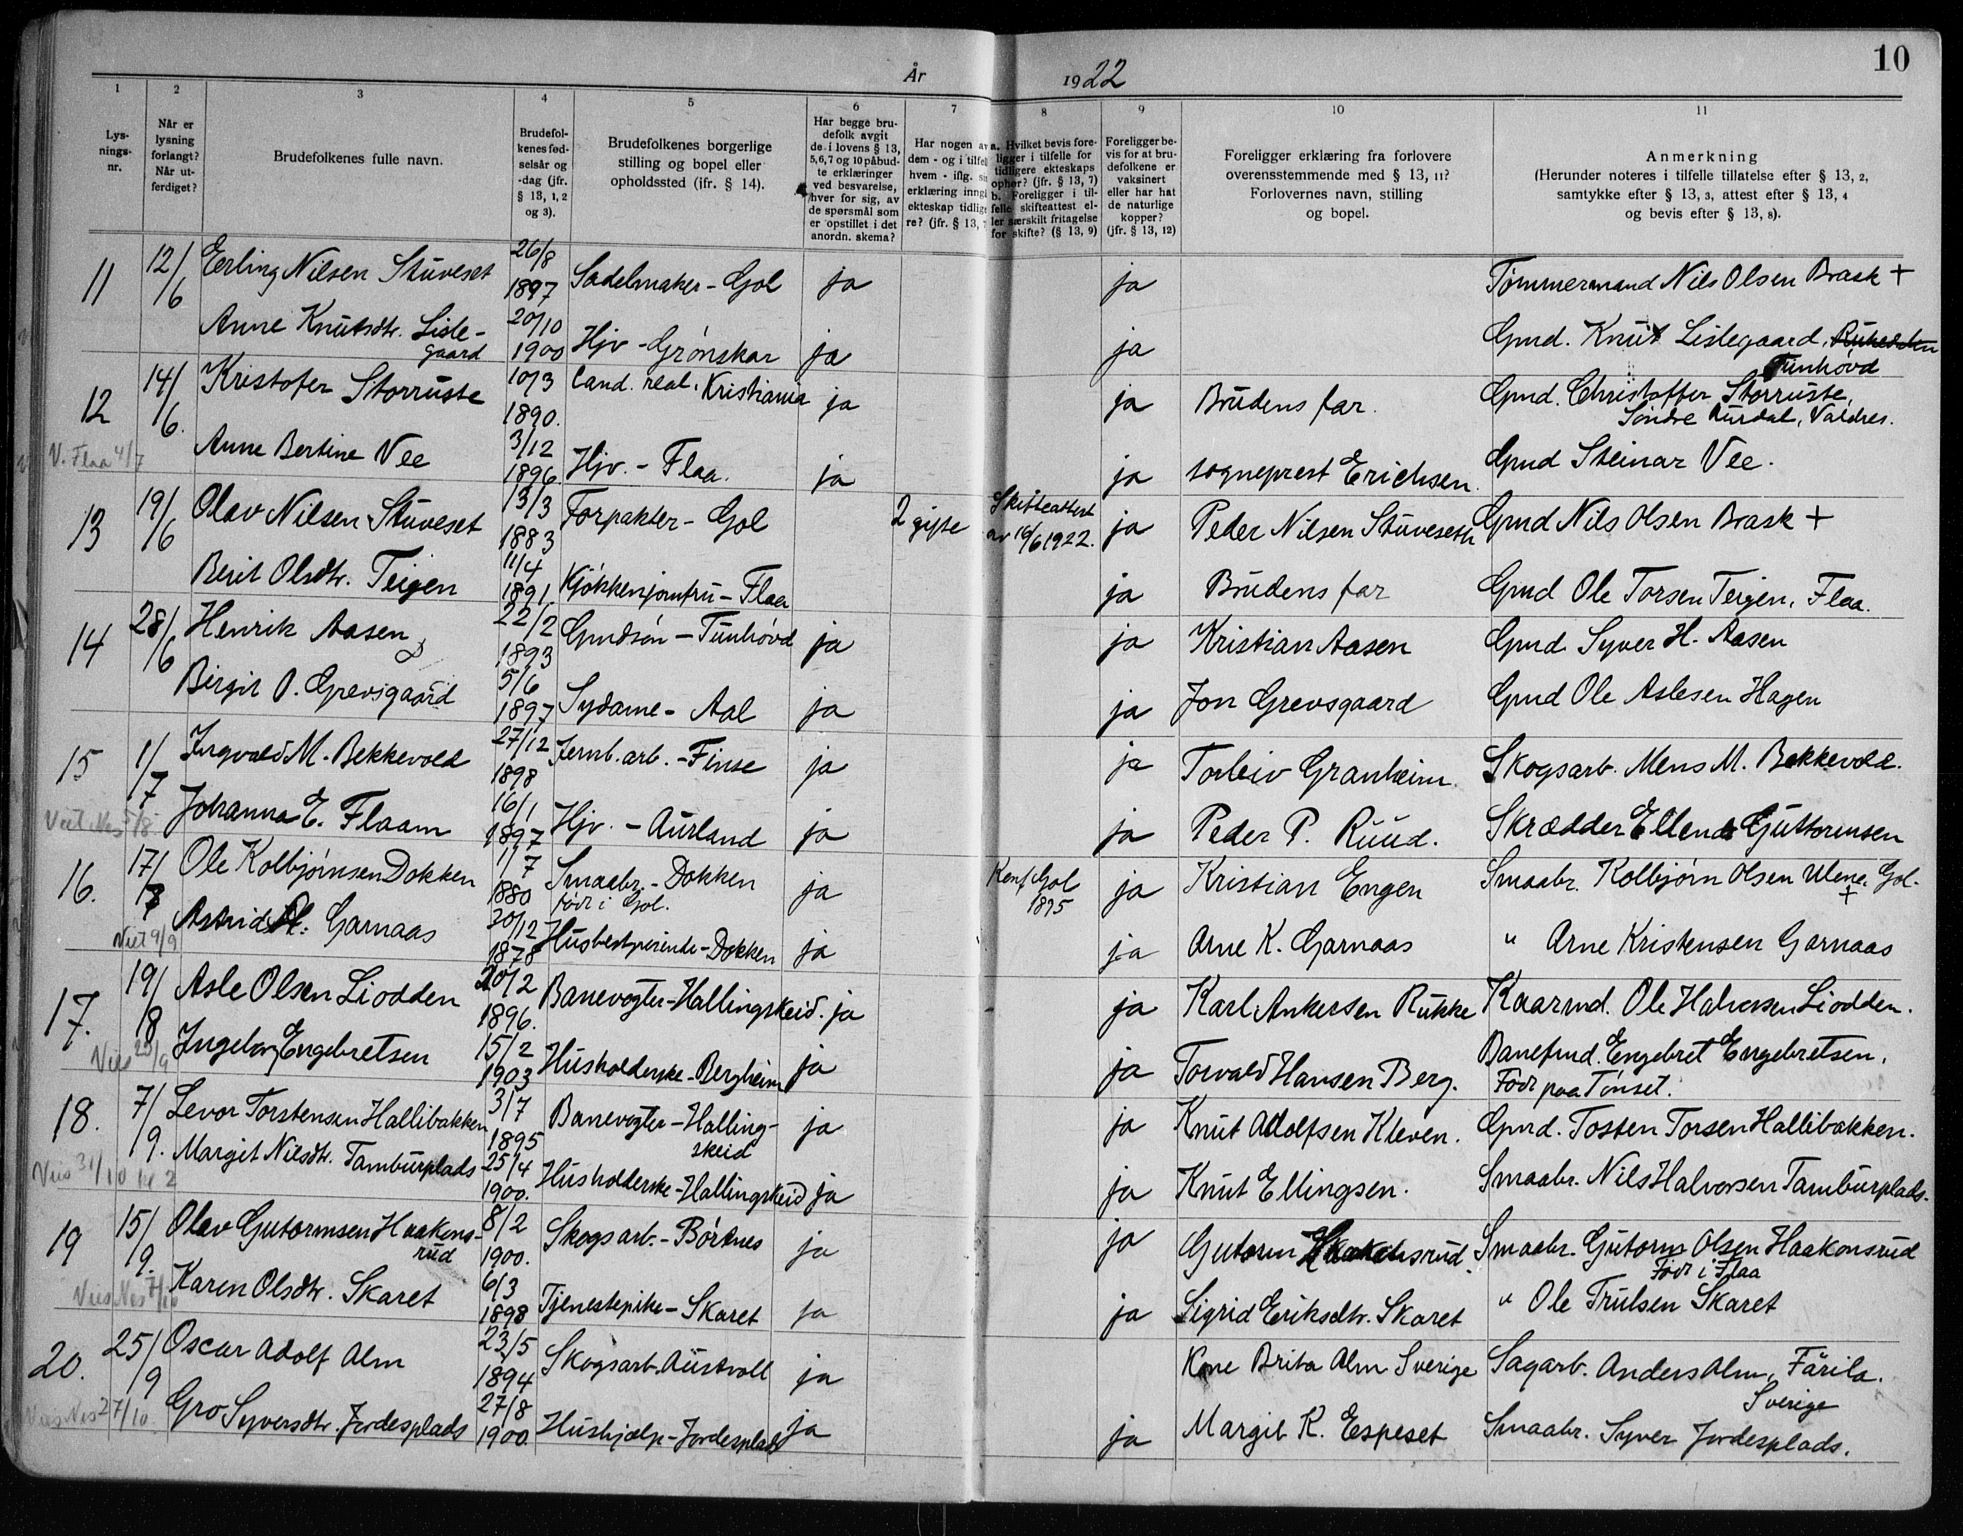 År 1922
10
1 2 3 4 5 6 7 8 9 10 11
Lysningsnr.
Når er lysning forlangt? Når utferdiget?
Brudefolkenes fulle navn.
Brudefolkenes fødselsår og -dag (jfr. § 13, 1, 2 og 3).
Brudefolkenes borgerlige stilling og bopel eller opholdssted (jfr. § 14).
Har begge brudefolk avgit de i lovens § 13, 5, 6, 7 og 10 påbudte erklæringer ved besvarelse, hver for sig, av de spørsmål som er opstillet i det anordn. skema?
Har nogen av dem - og i tilfelle hvem - iflg. sin erklæring inngått ekteskap tidligere? (jfr. § 13, 7
a. Hvilket bevis foreligger i tilfelle for tidligere ekteskaps ophør? (jfr. § 13, 7) b. Foreligger i tilfelle skifteattest eller særskilt fritagelse for skifte? (§ 13, 9)
Foreligger bevis for at brudefolkene er vaksinert eller har hat de naturlige kopper? (jfr. § 13, 12)
Foreligger erklæring fra forlovere overensstemmende med § 13, 11? Forlovernes navn, stilling og bopel.
Anmerkning (Herunder noteres i tilfelle tillatelse efter § 13, 2, samtykke efter § 13, 3, attest efter § 13, 4 og bevis efter § 13, 8).
11 12/6 Erling Nilsen Stuveset 26/8 1897 Sadelmaker - Gol ja ja Tømmermand Nils Olsen Brask +
Anne Knutsdtr. Lislegaard 20/10 1900 Hjv - Grønskar ja ja Gmd. Knut Lislegaard, Tunhövd
12 14/6. Kristofer Storruste 10/3 1890. Cand. real, Kristiania ja ja Brudens far. Gmd. Christoffer Storruste, Søndre Aurdal, Valdres.
V. Flaa 4/7 Anne Bertine Vee 3/12 1896 Hjv. - Flaa. ja ja sogneprest Erichsen. Gmd Steinar Vee.
13 19/6 Olav Nilsen Stuveset 13/3 1883 Forpakter - Gol 2 gifte Skifteattest av 16/6 1922. ja Peder Nilsen Stuveseth Gmd Nils Olsen Brask +
Berit Olsdtr. Teigen 11/4 1891 Kjøkkenjomfru - Flaa ja Brudens far Gmd Ole Torsen Teigen, Flaa.
14 28/6 Henrik Aasen 22/2 1893 Gmdsøn - Tunhövd ja ja Kristian Aasen Gmd Syver H. Aasen
Birgit O. Grevsgaard 5/6 1897 Sydame - Aal ja ja Jon Grevsgaard Gmd Ole Aslesen Hagen
15 1/7 Ingvald M. Bekkevold 27/12 1898 Jernb.arb. - Finse ja ja Torleiv Granheim Skogsarb. Mens M. Bekkevold.
Viet Nes 5/8 Johanna E. Flaam 16/1 1897 Hjv. - Aurland ja ja Peder P. Ruud. Skrædder Ellend Guttormsen
16. 17/7 Ole Kolbjørnsen Dokken 1/7 1880 Smaabr. - Dokken født i Gol. ja Konf. Gol 1895 ja Kristian Engen Smaabr. Kolbjørn Olsen Ulene, Gol. +
Viet 9/9 Astrid A. Garnaas 30/12 1878 Husbestyrerinde - Dokken ja ja Arne K. Garnaas " Arne Kristensen Garnaas
17. 19/8 Asle Olsen Liodden 20/2 1896. Banevogter - Hallingskeid. ja ja Karl Ankersen Rukke Kaarmd. Ole Halvorsen Liodden.
Vies 23/9 Ingeborg Engebretsen 15/2 1903 Husholderske - Bergheim ja ja Torvald Hansen Berg. Banefmd. Engebret Engebretsen. Født paa Tønset.
18. 7/9. Levor Torstensen Hallibakken 3/7 1895 Banevogter - Hallingskeid ja ja Knut Adolfsen Kleven. Gmd. Tosten Torsen Hallibakken.
Vies 31/10 kl 2 Margit Nilsdtr. Tamburplads 25/4 1900. Husholderske - Hallingskeid ja ja Knut Ellingsen. Smaabr. Nils Halvorsen Tamburplads.
19 15/9. Olav Gutormsen Haakonsrud 8/2 1900. Skogsarb. - Børtnes ja ja Gutorm Haakonsrud. Smaabr. Gutorm Olsen Haakonsrud Født i Flaa
Vies Nes 7/10 Karen Olsdtr. Skaret 6/3 1898 Tjenestepike - Skaret ja ja Sigrid Eriksdtr. Skaret " Ole Trulsen Skaret
20. 25/9 Oscar Adolf Alm 23/5 1894 Skogsarb. Austvoll ja Kone Brita Alm Sverige Sagarb. Anders Alm, Färila. Sverige
Vies Nes 27/10. Gro Syversdtr. Jordesplads 27/8 1900. Hushjælp - Jordesplads ja ja Margit K. Espeset Smaabr. Syver Jordesplads.